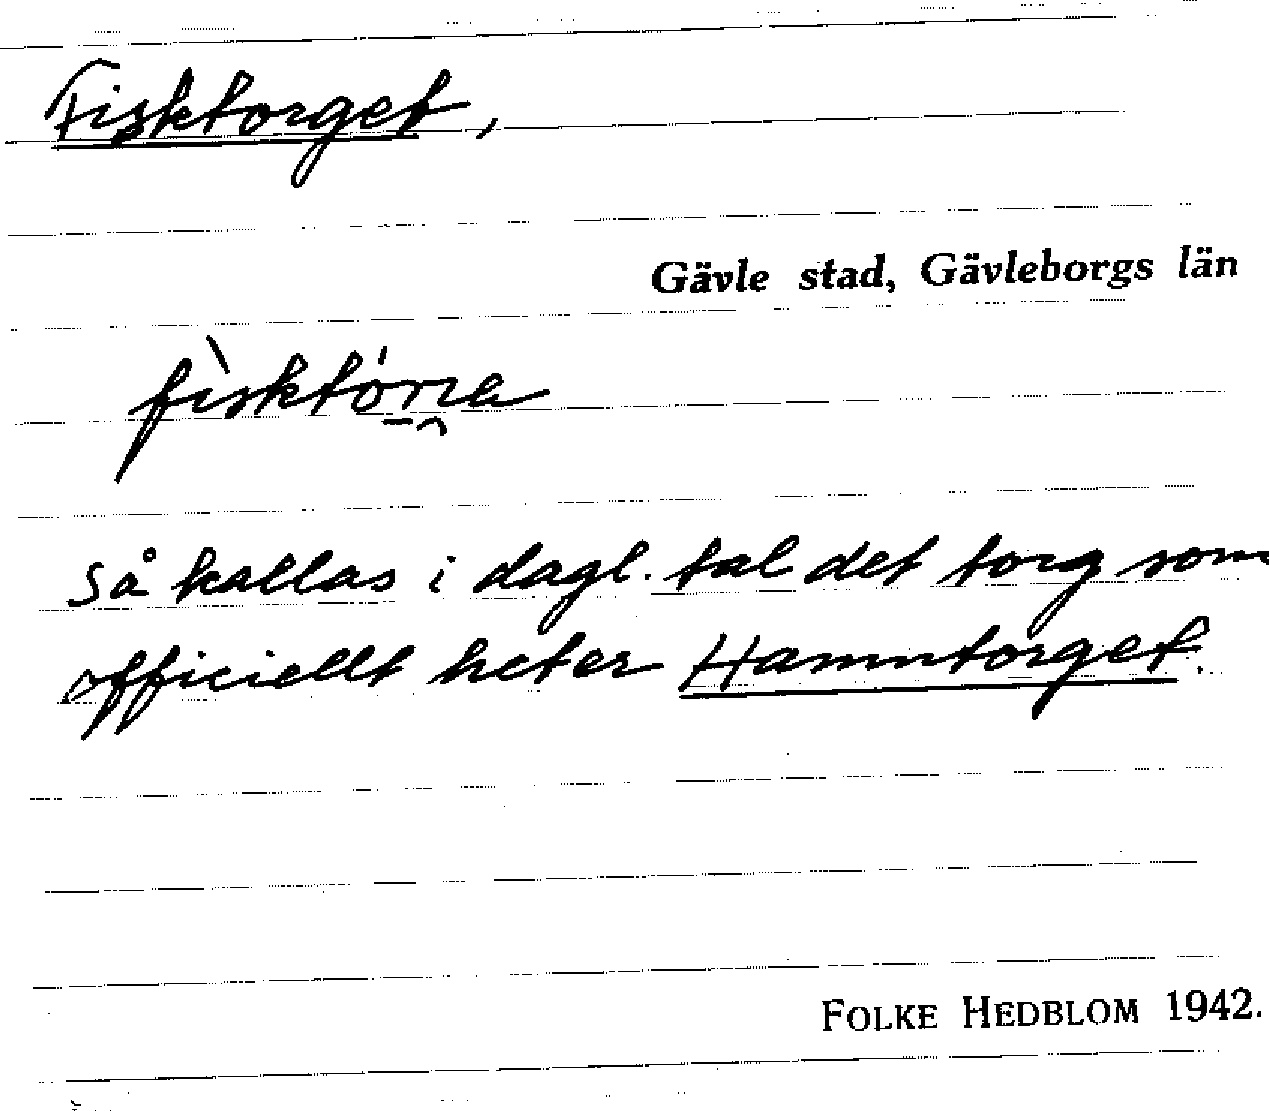 Fisktorget,
Gävle stad, Gävleborgs län
så kallas i dagl. tal det torg som
officiellt heter Hamntorget.
FOLKE HEDBLOM 1942.